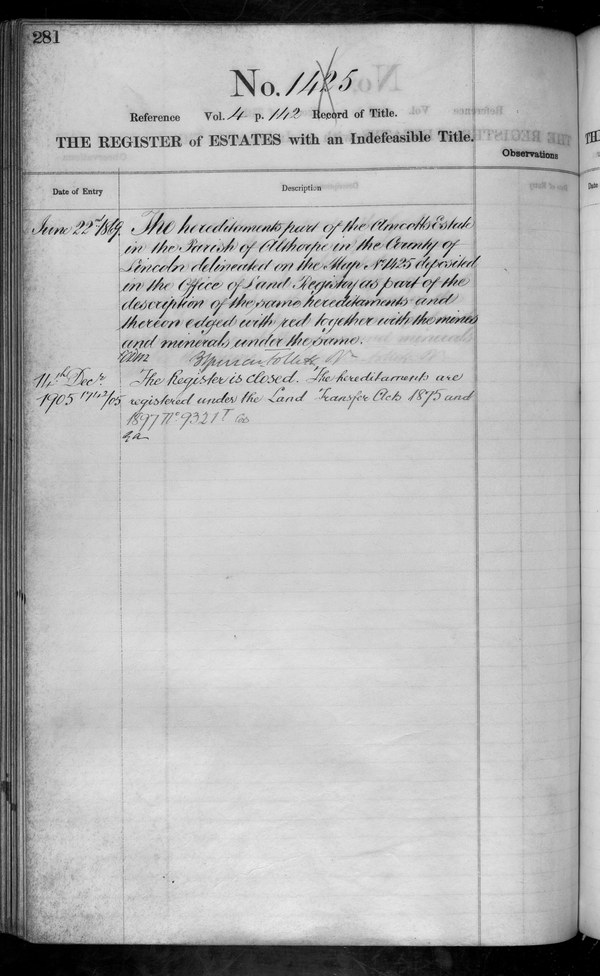 281
No. 1425
Reference Vol. 4 p. 142 Record of Title.
THE REGISTER of ESTATES with an Indefeasible Title.
Observations
Date of Entry
Description
June 22nd 1869. The hereditaments part of the Amcotts Estate
in the Parish of Althorpe in the County of
Lincoln delineated on the Map No 1425 deposited
in the Office of Land Registry as part of the
description of the same hereditaments and
thereon edged with red together with the mines
and minerals under the same.
14th Decr. The Register is closed. The hereditaments are
1905 registered under the Land Transfer Acts 1875 and
1897 No 9321